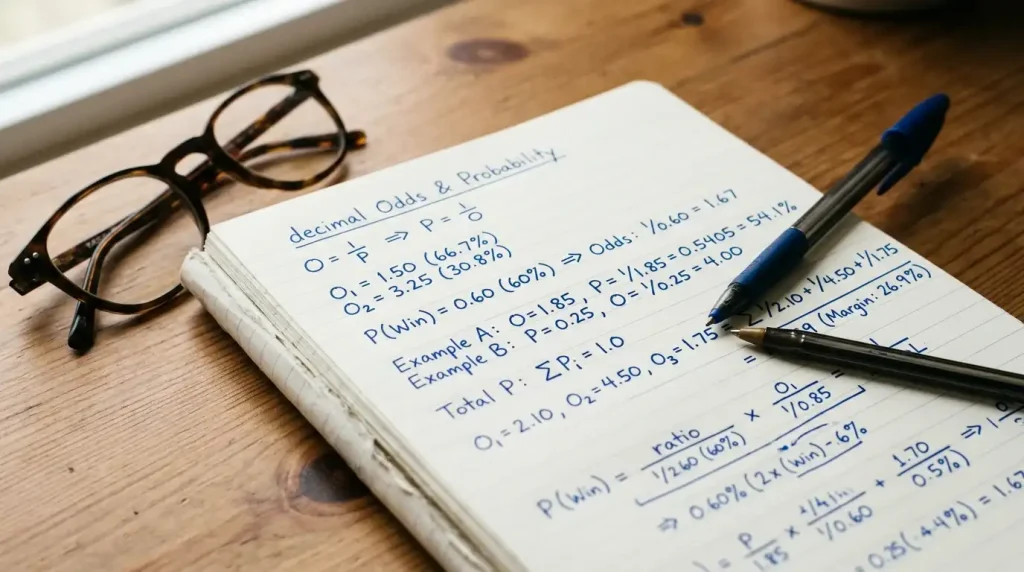 decimal Odds & Probability
O = 1/P ⇒ P = 1/O
O₁ = 1.50 (66.7%)
O₂ = 3.25 (30.8%)
P(Win) = 0.60 (60%) ⇒ Odds: 1/0.60 = 1.67
Example A: O=1.85, P = 1/1.85 = 0.5405 = 54.1%
Example B: P=0.25, O= 1/0.25 = 4.00
Total P: ∑Pᵢ = 1.0
O₁ = 2.10, O₂ = 4.50, O₃ = 1.75 ∑1/2.10 + 1/4.50 + 1/1.75
(Margin: 26.9%)
P(Win) = ratio / 1/260 (60%) × O₁ / 1/0.85 =
⇒ 0.60% (2x (Win) - 6%
= P / 1.85 × / 1/0.60 + 1.70 / 0.5% ⇒
= 0.25 (-4.4%) = 1.67